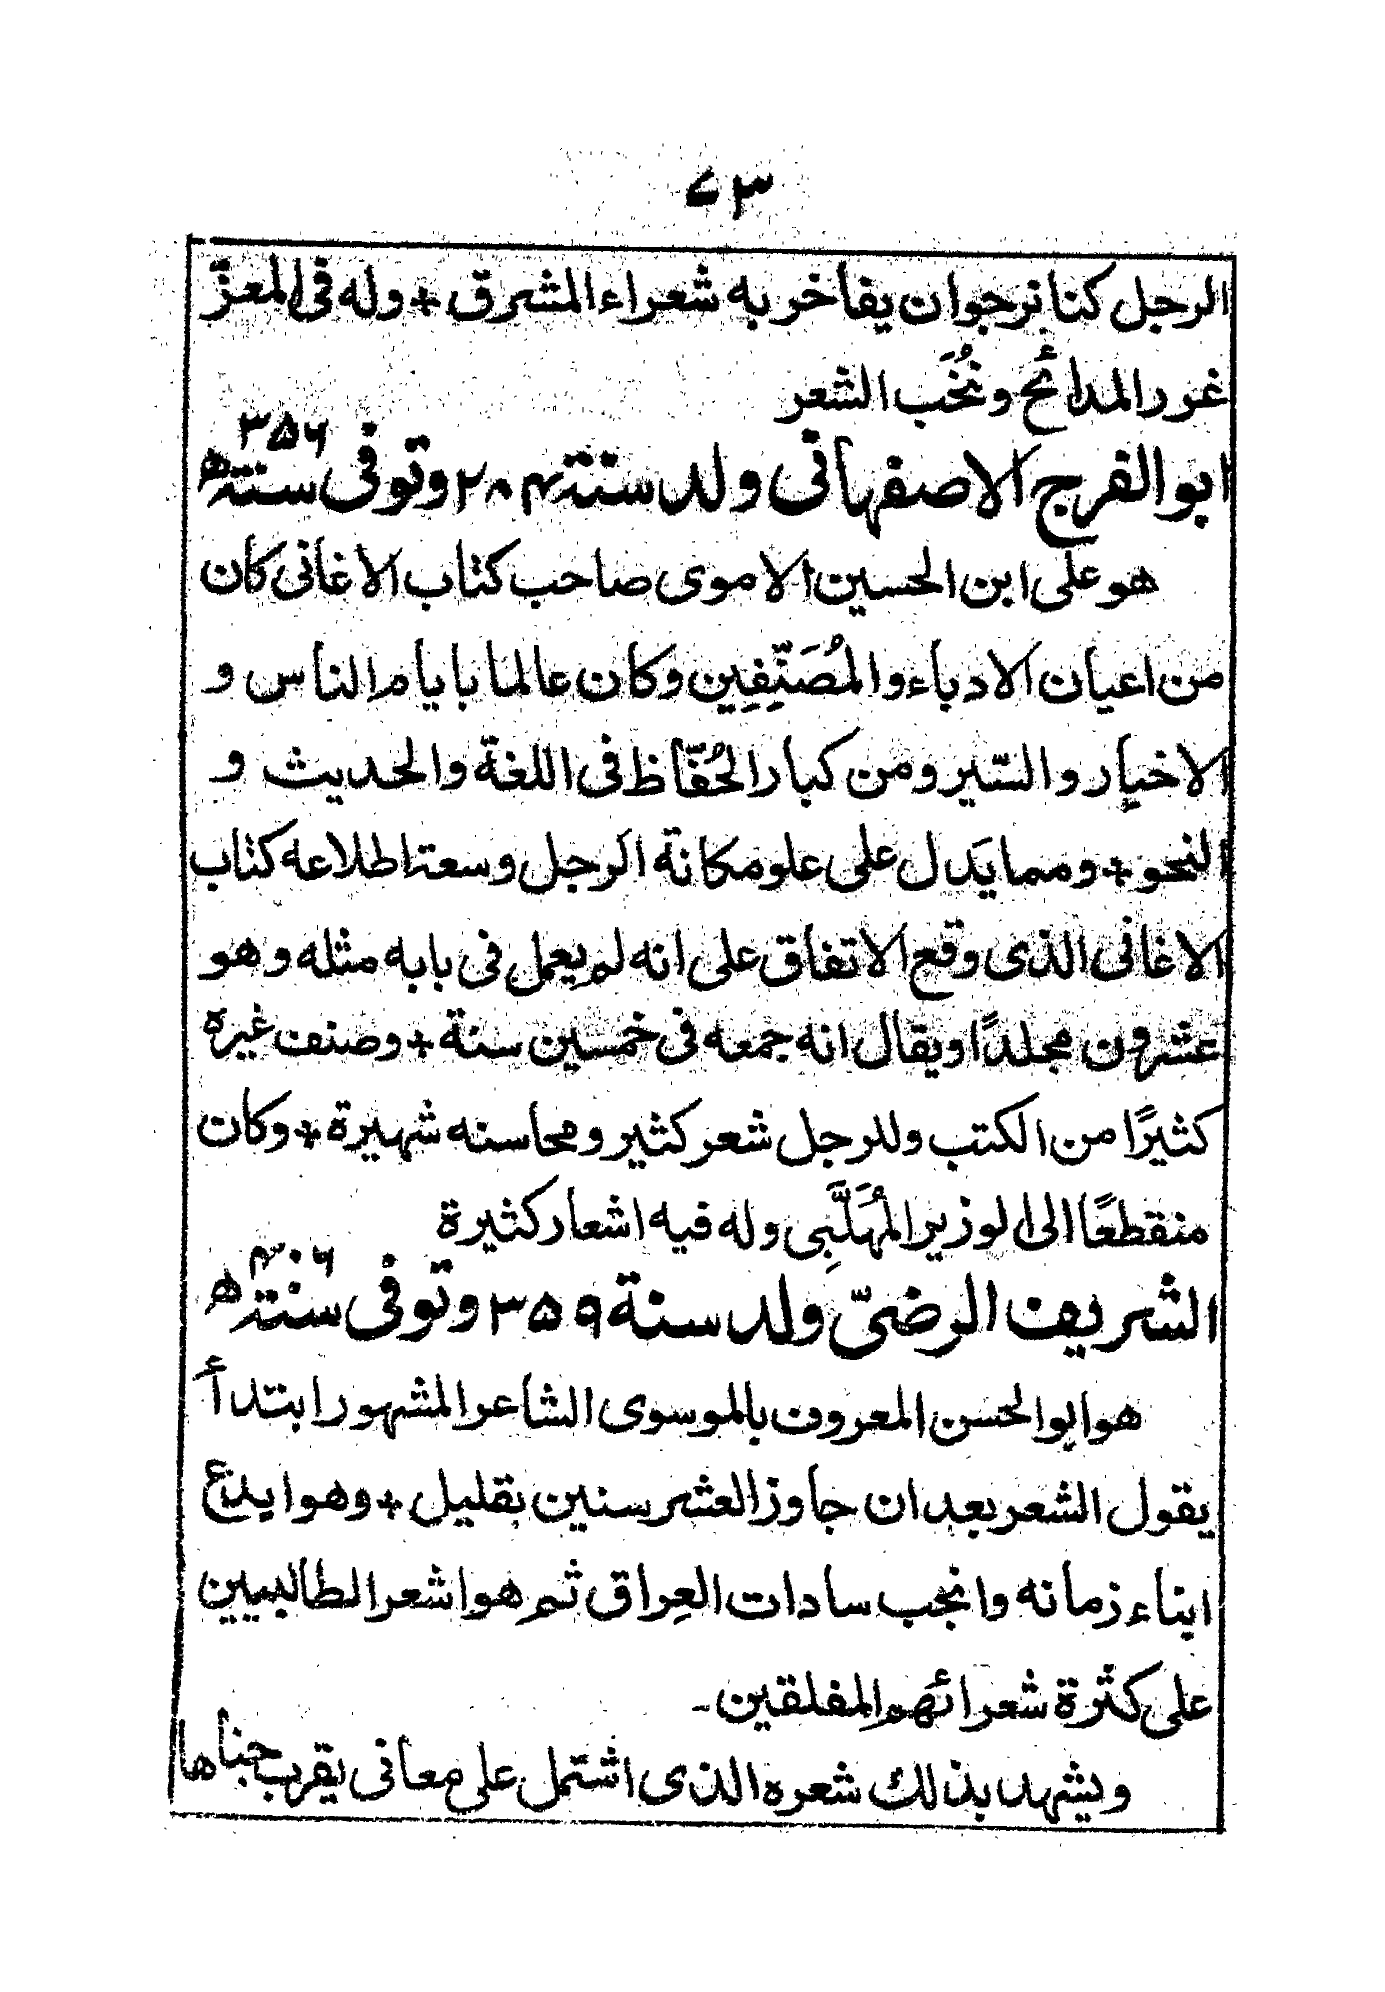 ٧٣
الرجل كنا نرجوان يفاخر به شعراء المشرق + وله فى المعزّ
غرر المدائح ونُخَب الشعر
ابو الفرج الاصفهانى ولد سنة ٢٨٤ وتوفى سنة ٣٥٦ ھ
هو على ابن الحسين الاموى صاحب كتاب الاغانى كان
من اعيان الادباء والمُصَنِّفِين وكان عالما بايام الناس و
الاخبار والسّير ومن كبار الحُفّاظ فى اللغة والحديث و
النحو + ومما يَدل على علو مكانة الرجل وسعة اطلاعه كتاب
الاغانى الذى وقع الاتفاق على انه لم يعمل فى بابه مثله وهو
عشرون مجلدًا ويقال انه جمعه فى خمسين سنة + وصنف غيره
كثيرًا من الكتب وللرجل شعر كثير ومحاسنه شهيرة + وكان
منقطعًا الى الوزير المُهَلَّبِى وله فيه اشعار كثيرة
الشريف الرضىّ ولد سنة ٣٥٩ وتوفى سنة ٤٠٦ ھ
هو ابو الحسن المعروف بالموسوى الشاعر المشهور ابتدأ
يقول الشعر بعد ان جاوز العشر سنين بقليل + وهو ابدع
ابناء زمانه وانجب سادات العِراق ثم هو اشعر الطالبيين
على كثرة شعرائهم المفلقين -
ويشهد بذلك شعره الذى اشتمل على معانى يقرب جناها